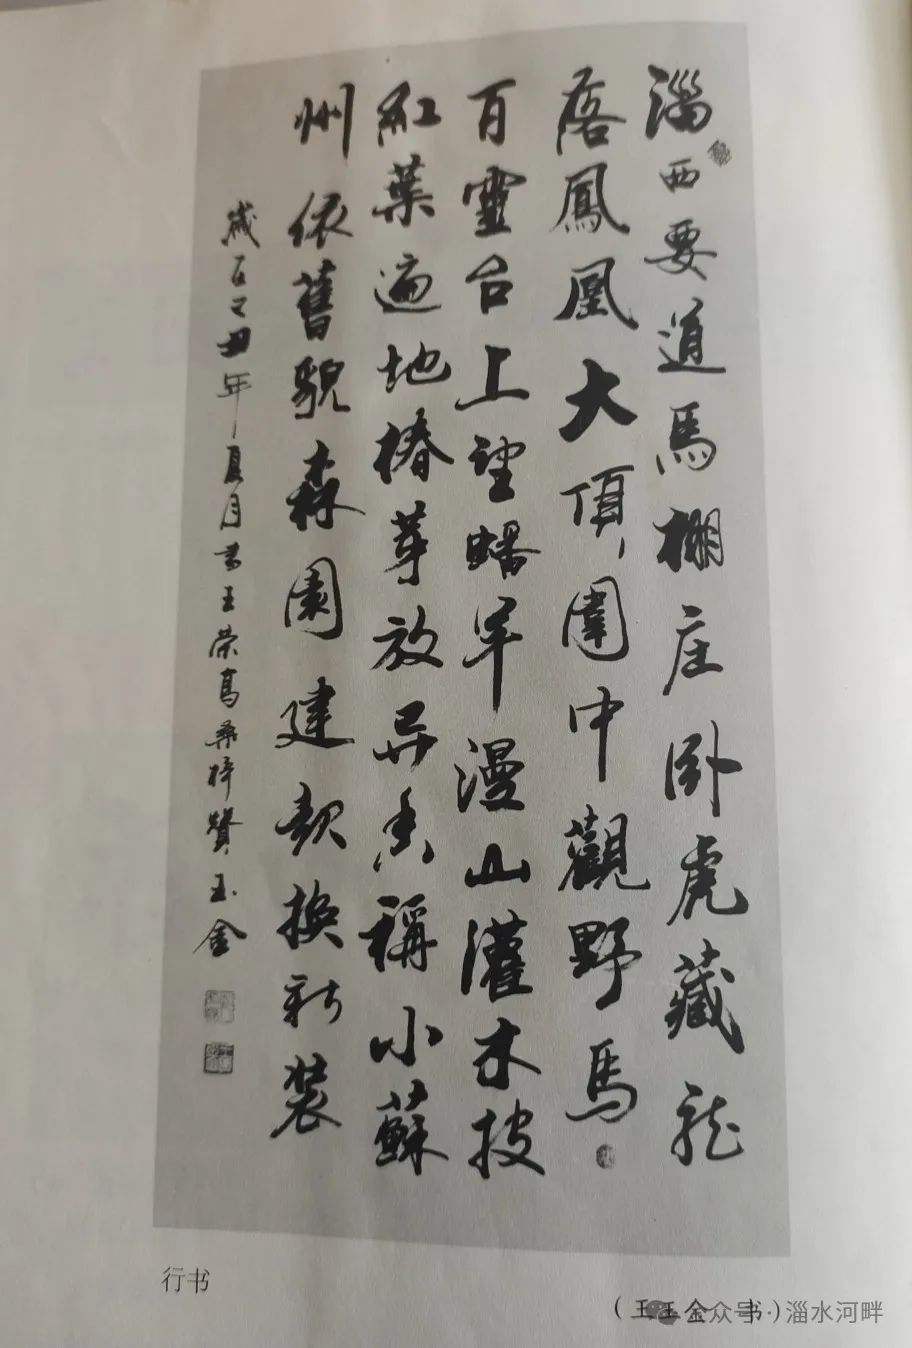 淄西要道馬棚庄卧虎藏龙
落鳳凰大頂圍中觀野馬
百靈台上望蟠羊漫山灌木披
紅葉遍地椿芽放异香稱小蘇
州依舊貌森園建换新装
歲在己丑年夏月書王荣高桑梓贊玉金
行书
(王玉金 书)
公众号 · 淄水河畔